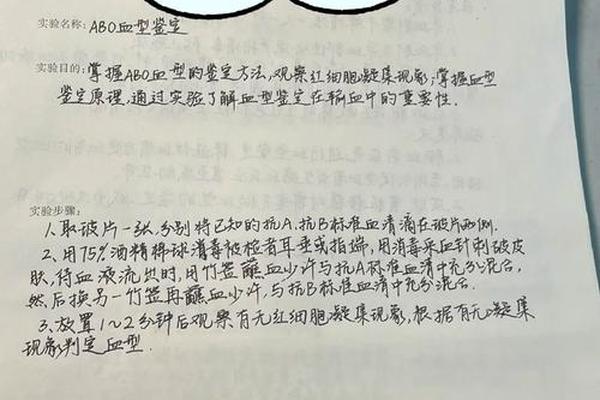 实验名称: ABO血型鉴定
实验目的: 掌握ABO血型的鉴定方法,观察红细胞凝集现象;掌握血型
鉴定原理,通过实验了解血型鉴定在输血中的重要性.
实验步骤:
1.取玻片一张,分别将已知的抗A、抗B标准血清滴在玻片两侧.
2.用75%酒精棉球消毒被检者耳垂或指端,用消毒采血针刺破皮
肤,待血液流出时,用竹签蘸血少许与抗A标准血清中充分混合,
然后换另一竹签再蘸血少许,与抗B标准血清中充分混合.
3.放置1~2分钟后观察有无红细胞凝集现象,根据有无凝集
现象判定血型.